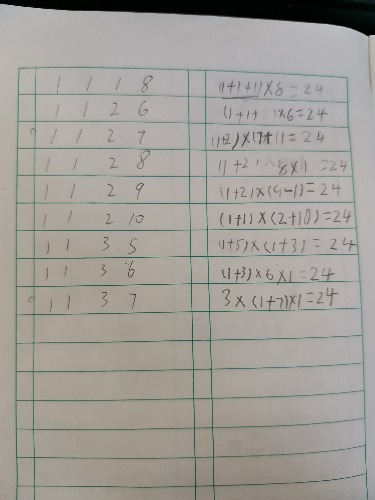 1 1 1 8 (1+1+1)×8=24
1 1 2 6 (1+1+ )×6=24
? 1 1 2 7 (1+2)×(7+1)=24
1 1 2 8 (1+2) 8×1=24
1 1 2 9 (1+2)×(9-1)=24
1 1 2 10 (1+1)×(2+10)=24
1 1 3 5 (1+5)×(1+3)=24
1 1 3 6 (1+3)×6×1=24
? 1 1 3 7 3×(1+7)×1=24